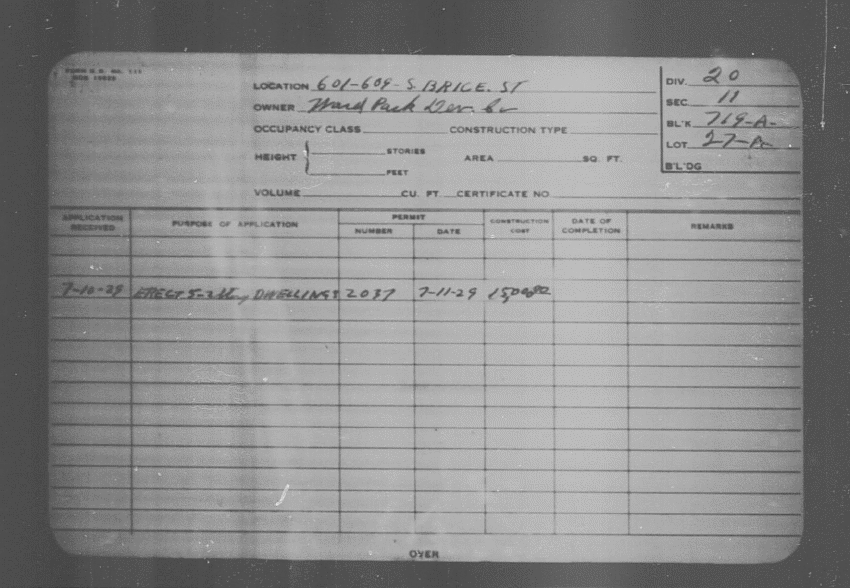 FORM B.B. No. 111
LOCATION 601-609- S. BRICE. ST
OWNER Ward Park Dev. Co
OCCUPANCY CLASS CONSTRUCTION TYPE
HEIGHT STORIES AREA SQ. FT.
FEET
VOLUME CU. FT. CERTIFICATE NO
DIV. 20
SEC. 11
BL'K 719-A-
LOT 27-A
B'L'DG
APPLICATION RECEIVED PURPOSE OF APPLICATION PERMIT CONSTRUCTION COST DATE OF COMPLETION REMARKS
NUMBER DATE
7-10-29 ERECT 5-2 Story DWELLINGS 2037 7-11-29 15,000.00
OVER